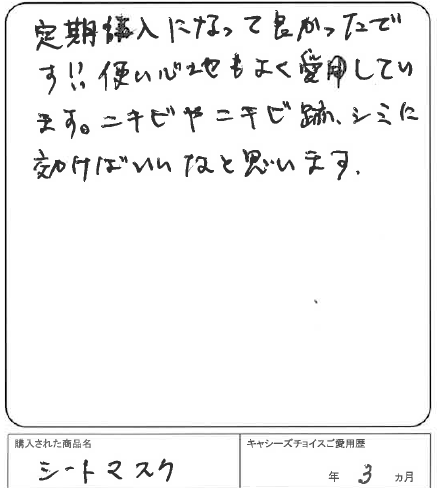 定期購入になって良かったで
す!!使い心地もよく愛用してい
ます。ニキビやニキビ跡、シミに
効けばいいなと思います.
購入された商品名
キャシーズチョイスご愛用歴
シートマスク
年 3 ヵ月